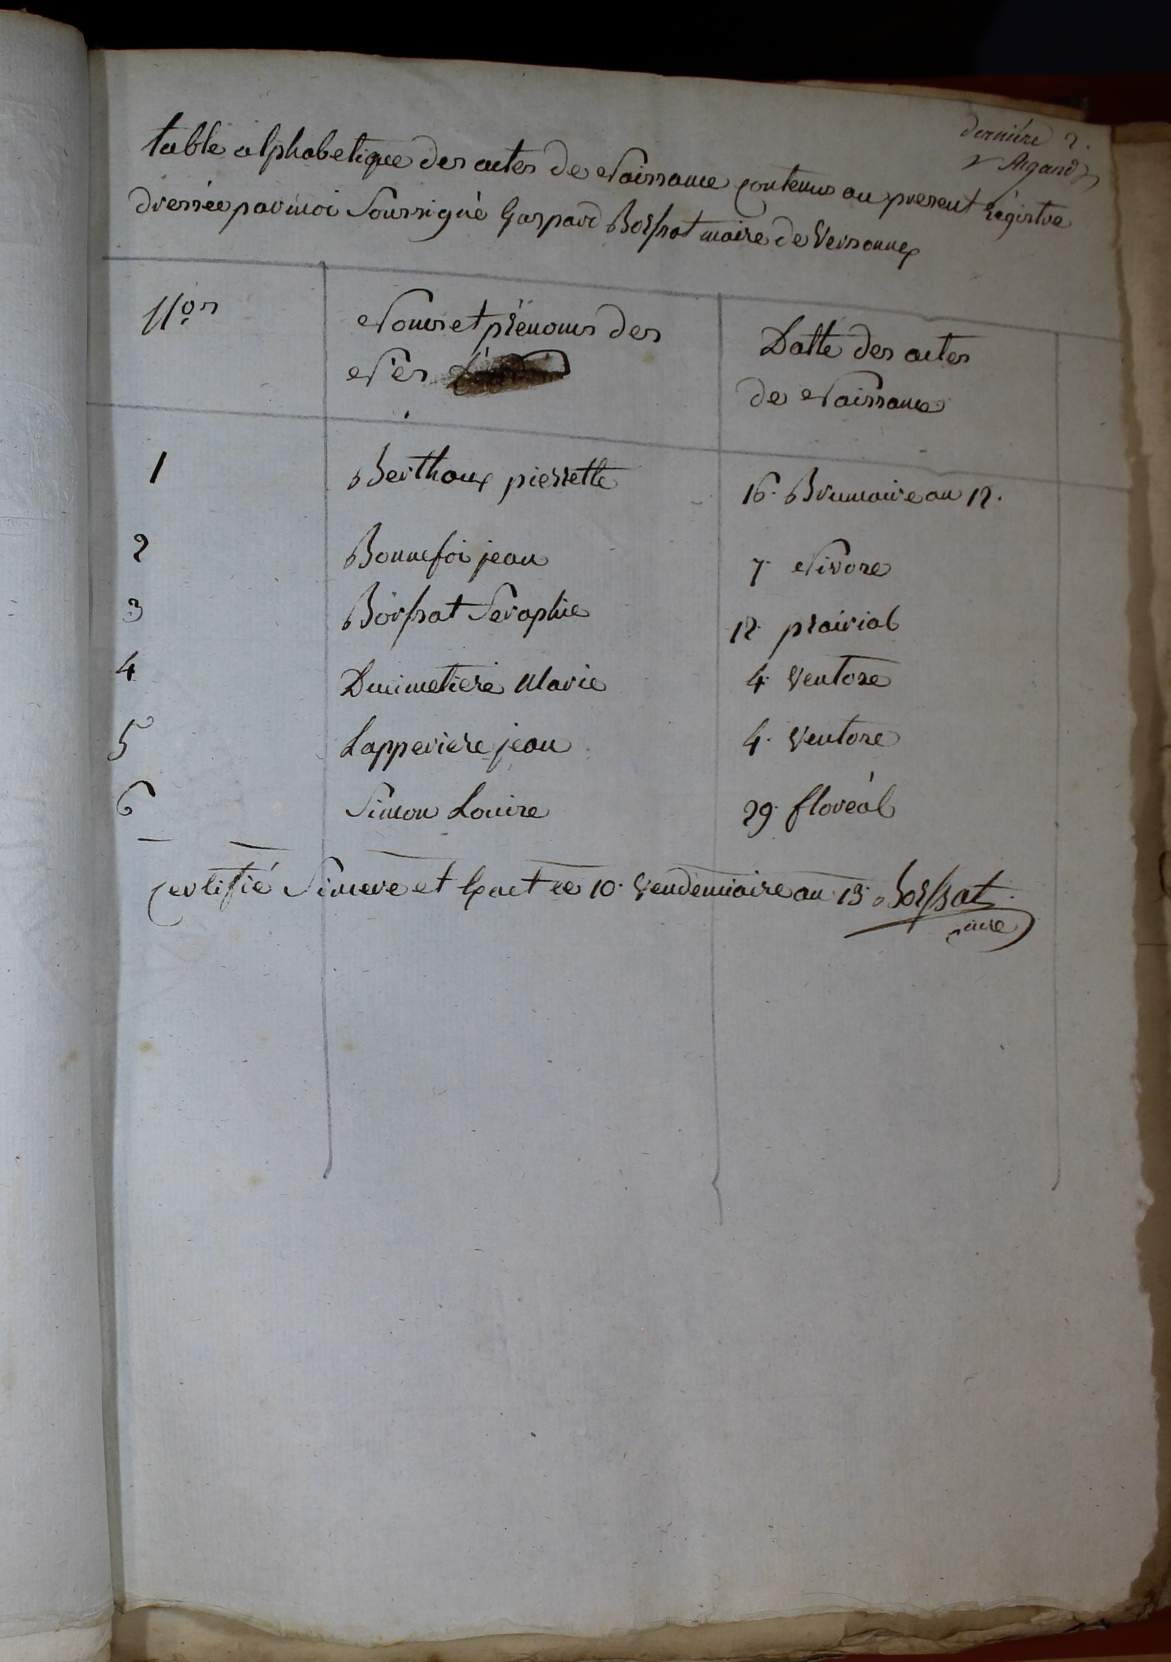 dernière 2.
Argand
table alphabetique des actes de Naissance contenus au present régistre
dressée par moi soussigné Gaspard Borssat maire de Versonnex
Nos
Noms et prénoms des
Nés
Datte des actes
de Naissance
1 Berthoux pierrette 16. Brumaire an 12.
2 Bonnefoi jean 7. Nivose
3 Borssat Seraphie 12. prairial
4 Ducimetiere Marie 4. Ventose
5 Lapperiere jean 4. Ventose
6 Simon Louise 29. floréal
certifié Sincere et Exact ce 10. Vendemiaire an 13. Borssat
maire